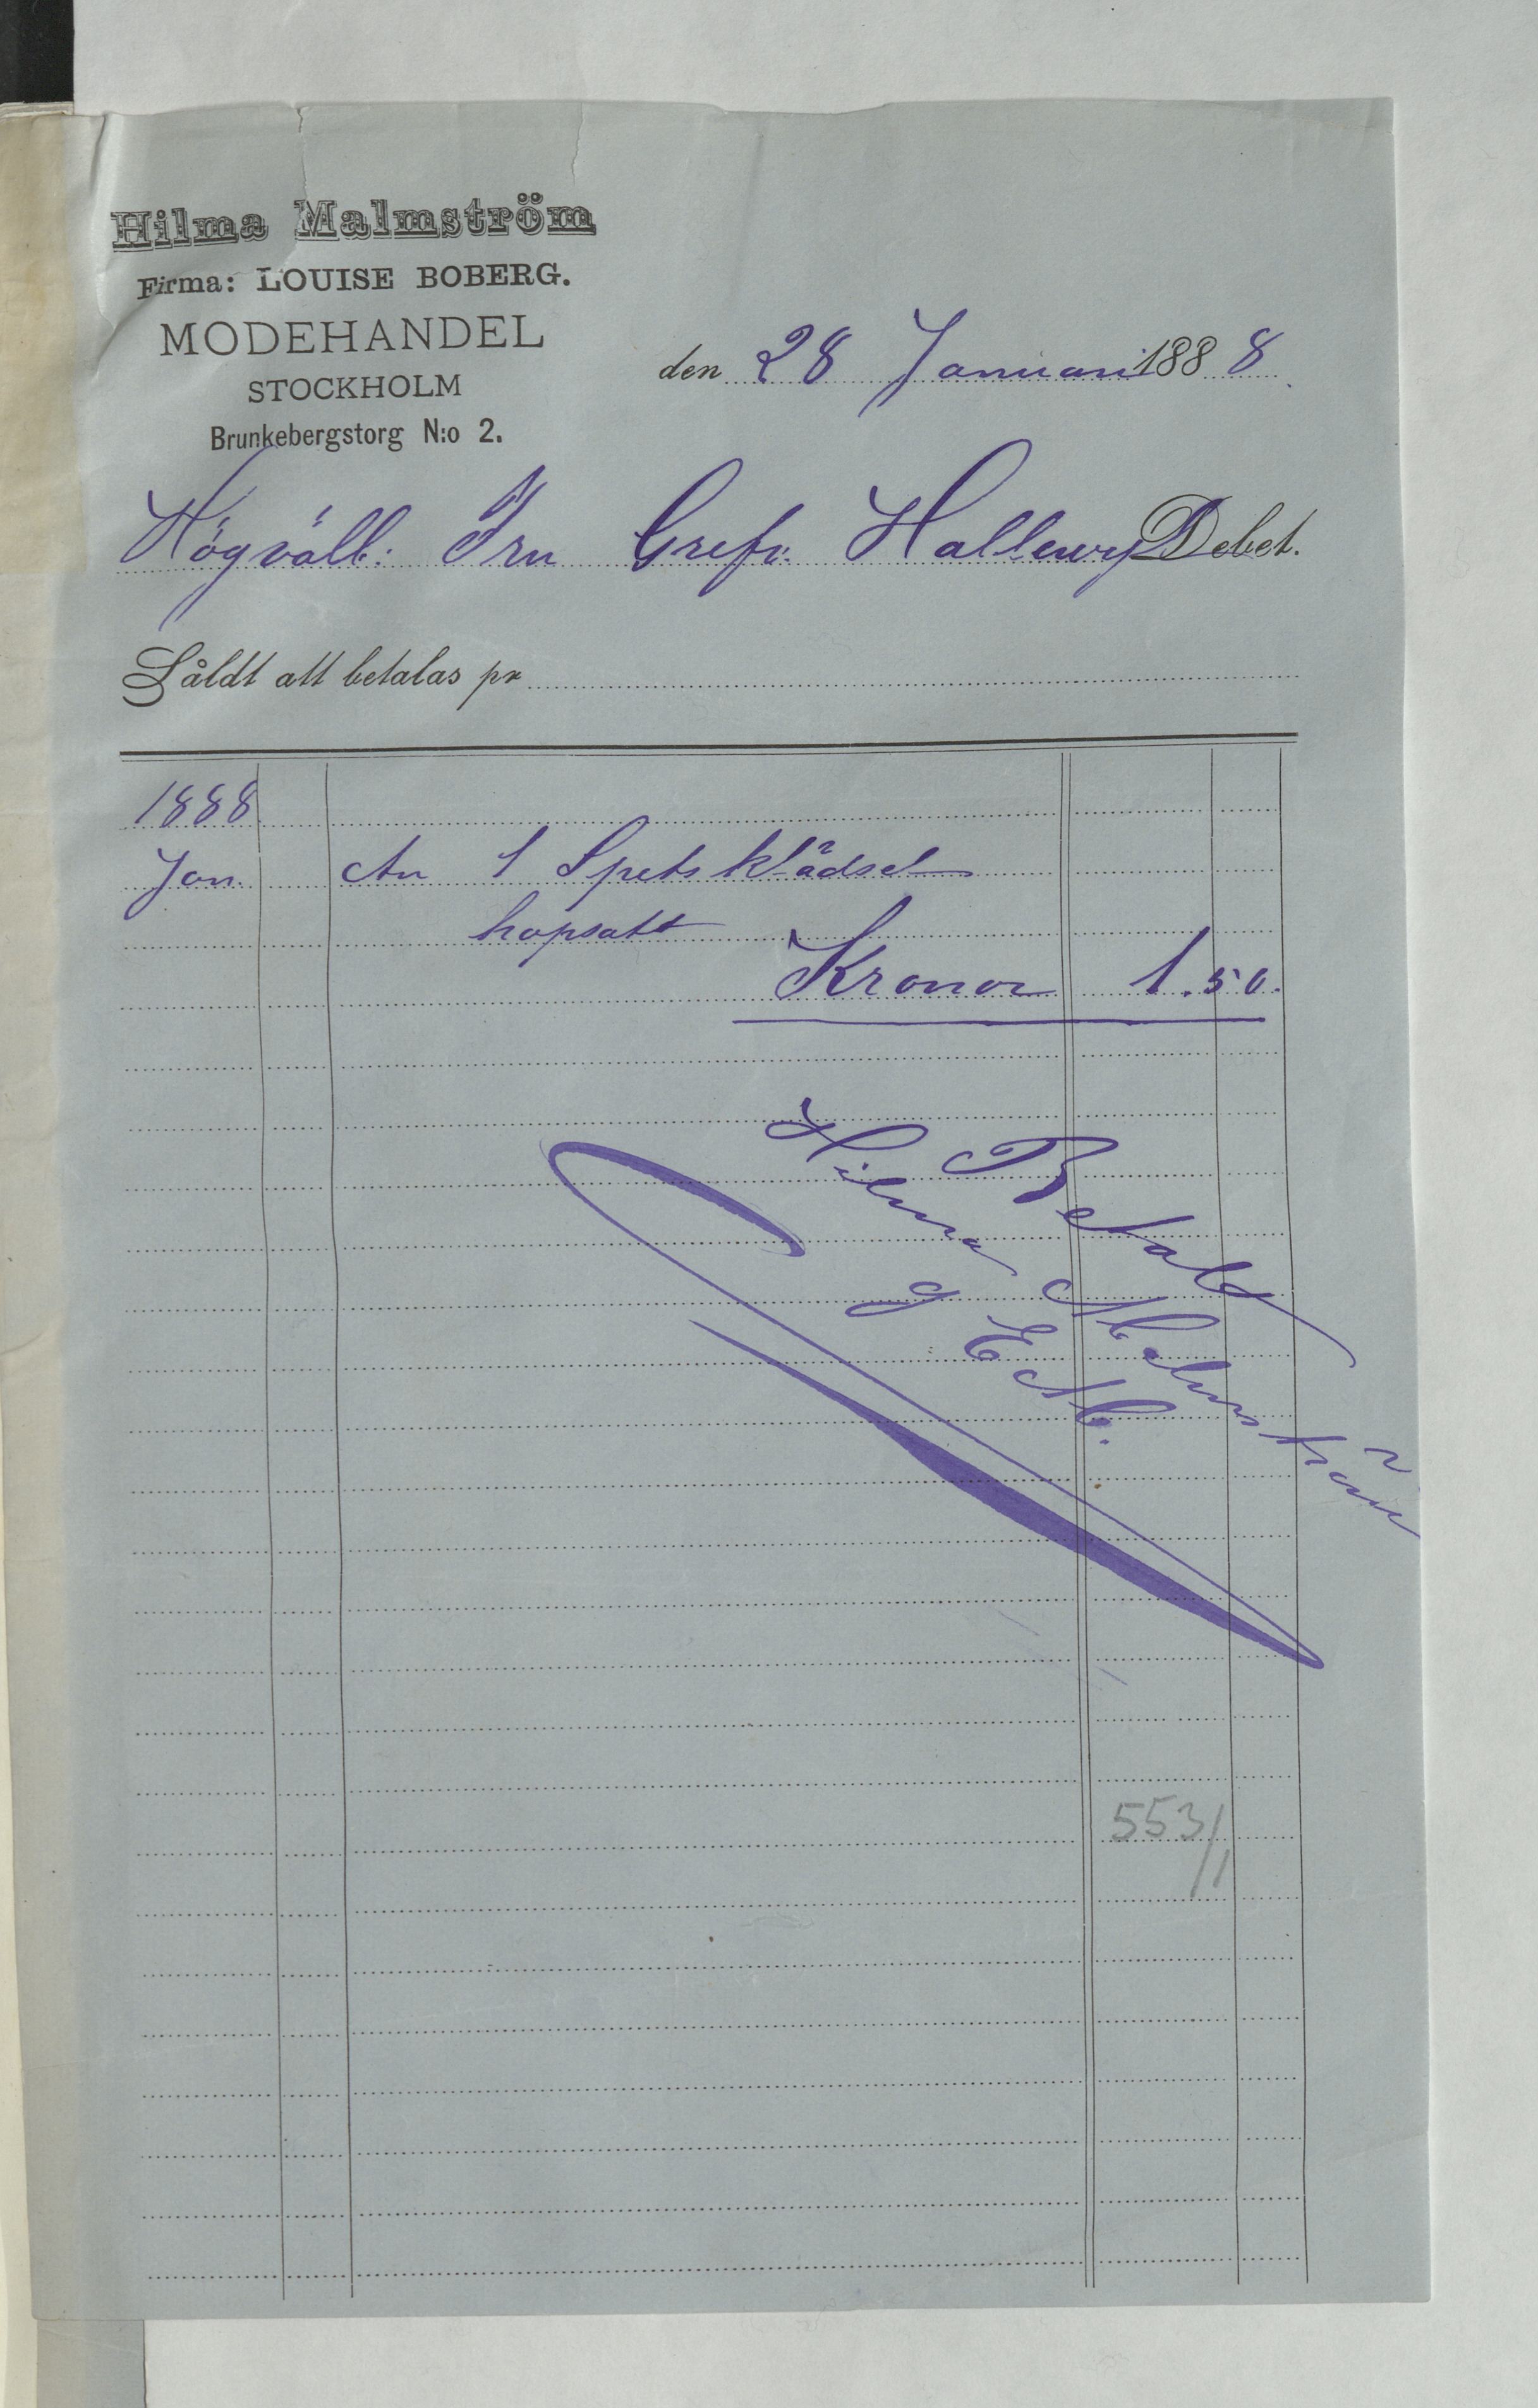 Hilma Malmström
Firma: LOUISE BOBERG.
MODEHANDEL
STOCKHOLM
Brunkebergstorg N:o 2.
den 28 Januari 1888
Högvälb: Fru Grefv. Hallewy Debet.
Såldt att betalas pr
1888
Jan. An 1 Spetsklädsel
hopsatt
Kronor 1.50.
Betalt
Hilma Malmström
g E M.
553/1